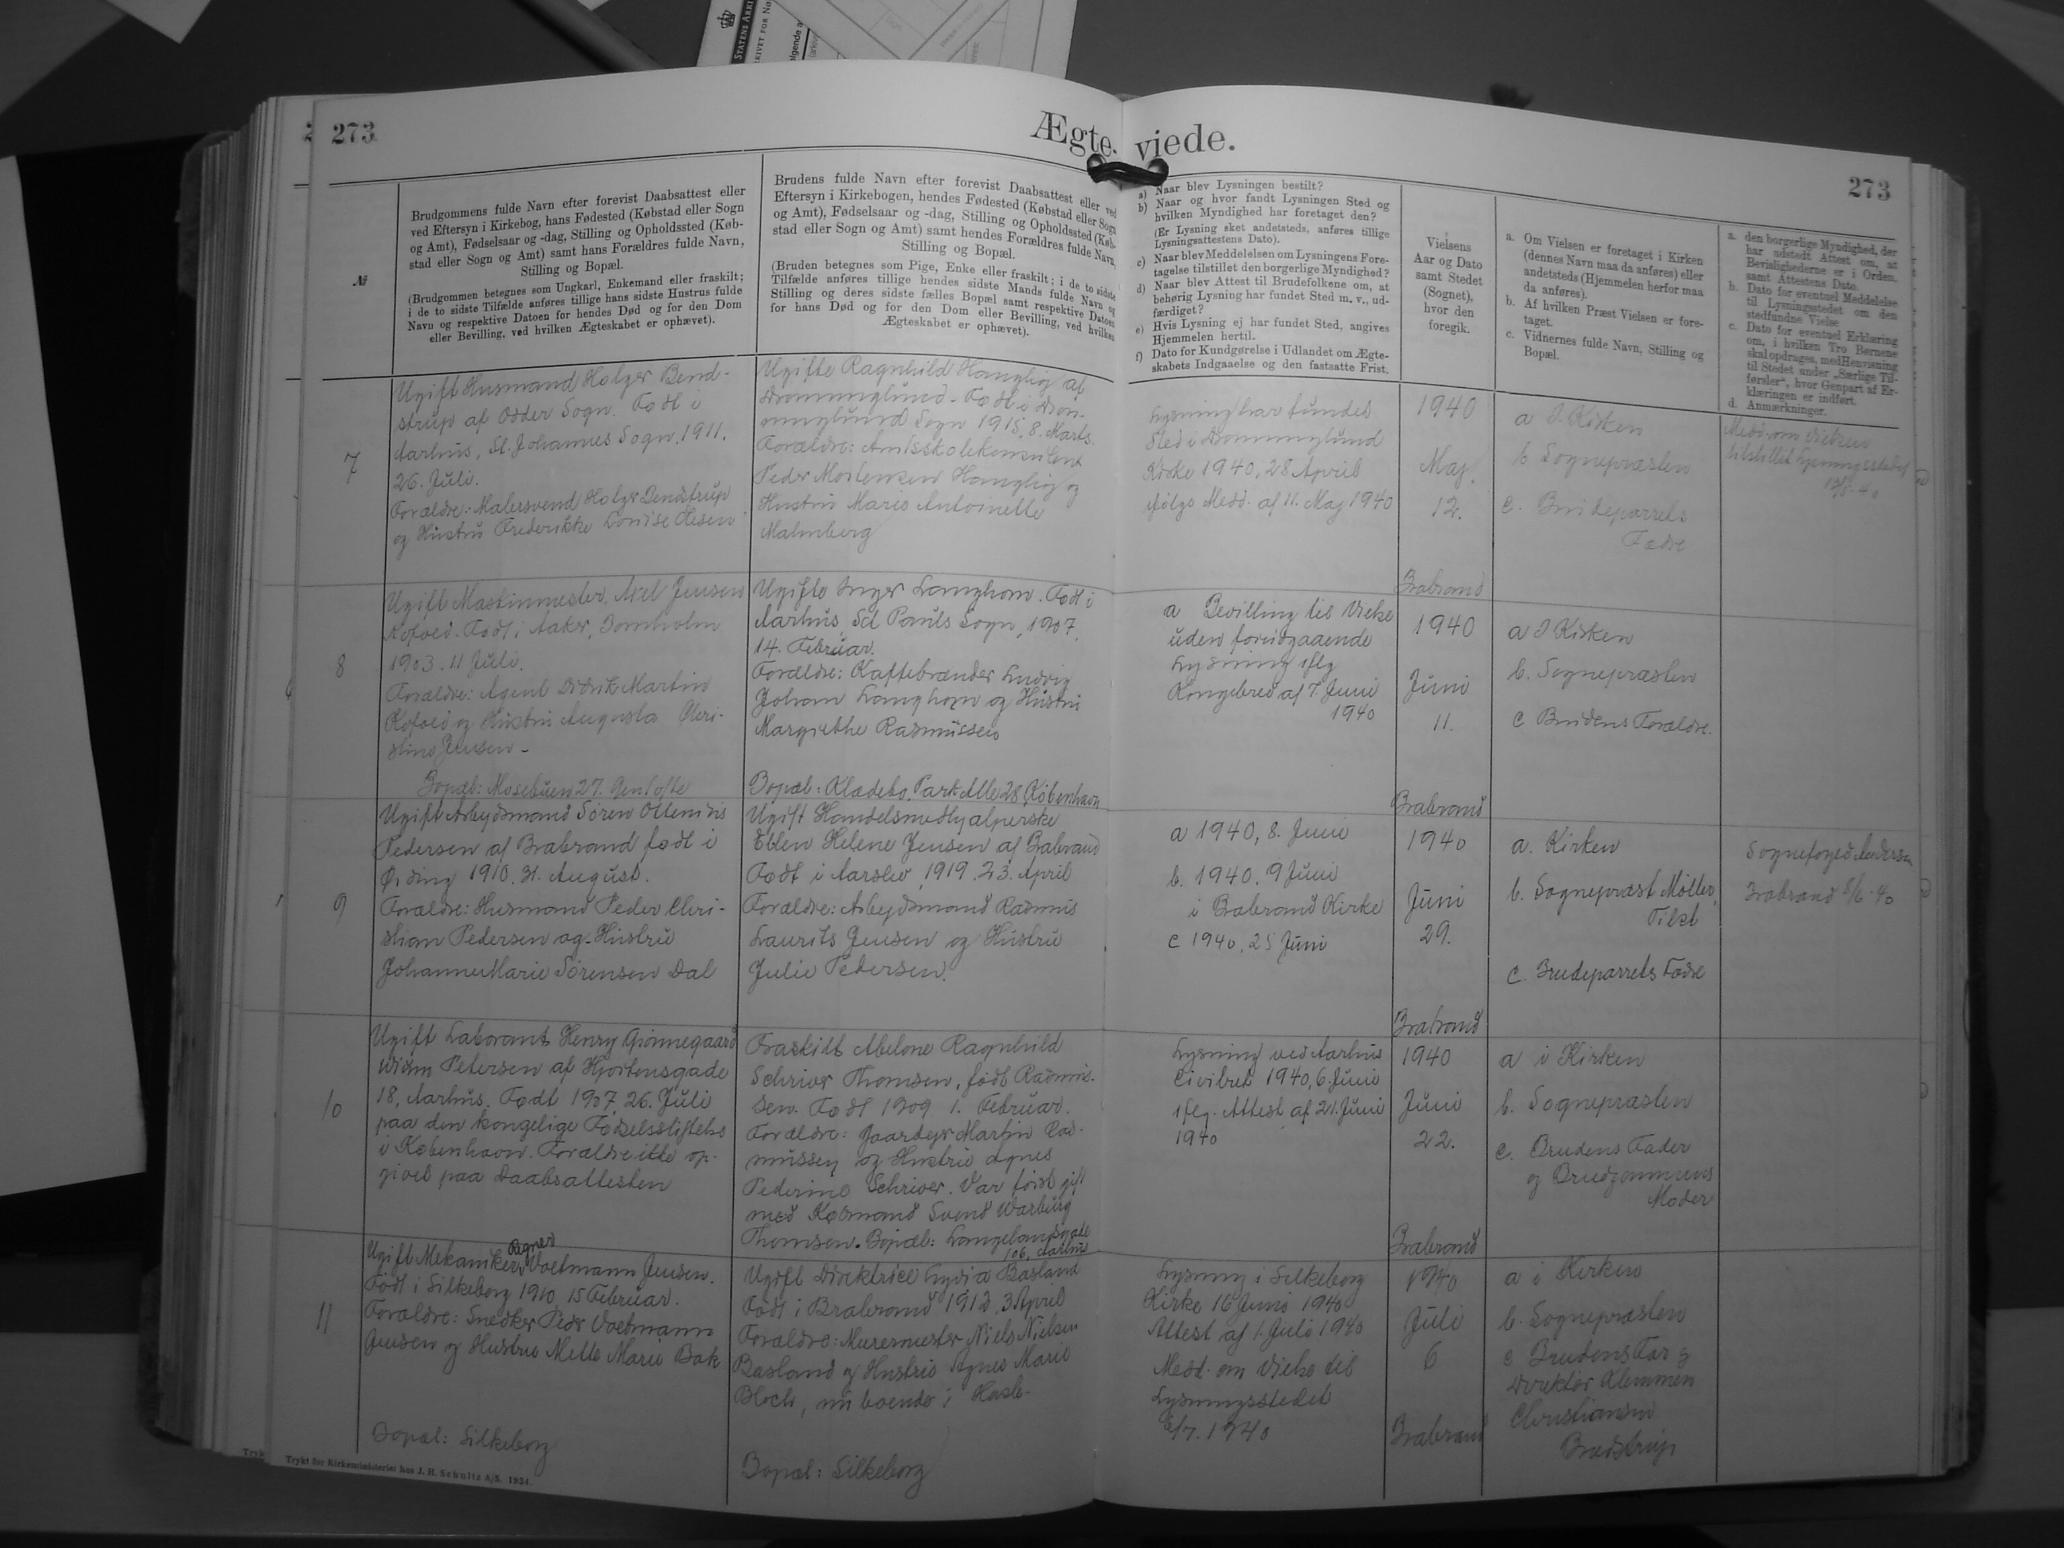 STATENS ARKI
273
Ægte-
viede.
273
№
Brudgommens fulde Navn efter forevist Daabsattest eller
ved Eftersyn i Kirkebog, hans Fødested (Købstad eller Sogn
og Amt), Fødselsaar og -dag, Stilling og Opholdssted (Køb-
stad eller Sogn og Amt) samt hans Forældres fulde Navn,
Stilling og Bopæl.
(Brudgommen betegnes som Ungkarl, Enkemand eller fraskilt;
i de to sidste Tilfælde anføres tillige hans sidste Hustrus fulde
Navn og respektive Datoen for hendes Død og for den Dom
eller Bevilling, ved hvilken Ægteskabet er ophævet).
Brudens fulde Navn efter forevist Daabsattest eller ved
Eftersyn i Kirkebogen, hendes Fødested (Købstad eller Sogn
og Amt), Fødselsaar og -dag, Stilling og Opholdssted (Køb-
stad eller Sogn og Amt) samt hendes Forældres fulde Navn,
Stilling og Bopæl.
(Bruden betegnes som Pige, Enke eller fraskilt; i de to sidste
Tilfælde anføres tillige hendes sidste Mands fulde Navn og
Stilling og deres sidste fælles Bopæl samt respektive Datoen
for hans Død og for den Dom eller Bevilling, ved hvilken
Ægteskabet er ophævet).
a) Naar blev Lysningen bestilt?
b) Naar og hvor fandt Lysningen Sted og
hvilken Myndighed har foretaget den?
(Er Lysning sket andetsteds, anføres tillige
Lysningsattestens Dato).
c) Naar blev Meddelelsen om Lysningens Fore-
tagelse tilstillet den borgerlige Myndighed?
d) Naar blev Attest til Brudefolkene om, at
behørig Lysning har fundet Sted m. v., ud-
færdiget?
e) Hvis Lysning ej har fundet Sted, angives
Hjemmelen hertil.
f) Dato for Kundgørelse i Udlandet om Ægte-
skabets Indgaaelse og den fastsatte Frist.
Vielsens
Aar og Dato
samt Stedet
(Sognet),
hvor den
foregik.
a. Om Vielsen er foretaget i Kirken
(dennes Navn maa da anføres) eller
andetsteds (Hjemmelen herfor maa
da anføres).
b. Af hvilken Præst Vielsen er fore-
taget.
c. Vidnernes fulde Navn, Stilling og
Bopæl.
a. den borgerlige Myndighed, der
har udstedt Attest om, at
Betingelserne er i Orden,
samt Attestens Dato.
b. Dato for eventuel Meddelelse
til Lysningsstedet om den
stedfundne Vielse
c. Dato for eventuel Erklæring
om, i hvilken Tro Børnene
skal opdrages, med Henvisning
til Stedet under „Særlige Til-
førsler“, hvor Genpart af Er-
klæringen er indført.
d. Anmærkninger.
7
Ugift Husmand Holger Bend-
strup af Odder Sogn. Født i
Aarhus, St. Johannes Sogn, 1911,
26. Juli.
Forældre: Malersvend Holger Bendstrup
og Hustru Frederikke Louise
Ugifte Ragnhild Hanghøj af
Dronninglund. Født i Dron-
ninglund Sogn 1915, 8. Marts.
Forældre: Amtsskolekonsulent
Peder Mortensen Hanghøj og
Hustru Marie Antoinette
Malmberg
Lysning har fundet
Sted i Dronninglund
Kirke 1940, 28 April
ifølge Medd. af 11. Maj 1940
1940
Maj
12.
Brabrand
a I Kirken
b Sognepræsten
c. Brudeparrets
Fædre
Medd. om Vielsen
tilstillet Lysningsstedet
8
Ugift Maskinmester, Axel Jensen
Kofoed. Født i Aaker, Bornholm
1903. 11 Juli.
Forældre: Agent Didrik Martin
Kofoed og Hustru Augusta Chri-
stine Jensen -
Bopæl: Mosebuen 27. Gentofte
Ugifte Inger Langhorn. Født i
Aarhus, Sct Pauls Sogn, 1907,
14. Februar.
Forældre: Kaffebrænder Ludvig
Johan Langhorn og Hustru
Margrethe Rasmussen
Bopæl: Kladebo, Park Alle 28, København
a Bevilling til Vielse
uden foreudgaaende
Lysning iflg
Kongebrev af 7. Juni
1940
1940
Juni
11.
Brabrand
a I Kirken
b. Sognepræsten
c Brudens Forældre.
9
Ugift Arbejdsmand Søren Ottenius
Pedersen af Brabrand født i
Ørding 1910. 31. August.
Forældre: Husmand Peder Chri-
stian Pedersen og Hustru
Johanne Marie Sørensen Dal
Ugift Handelsmedhjælperske
Ellen Helene Jensen af Brabrand
Født i Aarslev, 1919. 23. April
Forældre: Arbejdsmand Rasmus
Laurits Jensen og Hustru
Julie Pedersen.
a 1940, 8. Juni
b. 1940. 9 Juni
i Brabrand Kirke
c 1940, 25 Juni
1940
Juni
29.
Brabrand
a. Kirken
b. Sognepræst Møller,
Tilst
c. Brudeparrets Fædre
Sognefoged Andersen
Brabrand 8/6-40
10
Ugift Laborant Henry Grønnegaard
Widm Petersen af Hjortensgade
18, Aarhus. Født 1907, 26. Juli
paa den kongelige Fødselsstiftelse
i København. Forældre ikke op-
givet paa Daabsattesten
Fraskilt Abelone Ragnhild
Schriver Thomsen, født Rasmus-
sen. Født 1909 1. Februar.
Forældre: Gaardejer Martin Ras-
mussen og Hustru Agnes
Pederine Schriver. Var først gift
med Købmand Svend Warburg
Thomsen. Bopæl: Langelandsgade
106, Aarhus
Lysning ved Aarhus
Civilret 1940, 6. Juni
iflg. Attest af 21. Juni
1940
1940
Juni
22.
Brabrand
a i Kirken
b. Sognepræsten
c. Brudens Fader
og Brudgommens
Moder
11
Agner
Ugift Mekaniker Voetmann Jensen.
Født i Silkeborg 1910, 15 Februar.
Forældre: Snedker Peder Voetmann
Jensen og Hustru Mette Marie Bak
Bopæl: Silkeborg
Ugift Direktrice Lydia Basland
Født i Brabrand 1912, 3 April
Forældre: Murermester Niels Nielsen
Basland og Hustru Agnes Marie
Bloch, nu boende i Hasle-
Bopæl: Silkeborg
Lysning i Silkeborg
Kirke 16 Juni 1940
Attest af 1. Juli 1940
Medd. om Vielse til
Lysningsstedet
6/7. 1940
1940
Juli
6
Brabrand
a i Kirken
b. Sognepræsten
c Brudens Far og
Direktør Klemmen
Christiansen
Brædstrup
Trykt for Kirkeministeriet hos J. H. Schultz A/S. 1934.